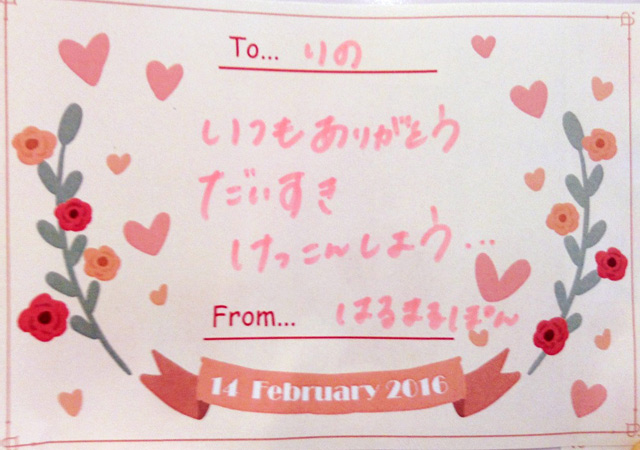 To... りの
いつもありがとう
だいすき
けっこんしよう...
From... はるまるぽん
14 February 2016